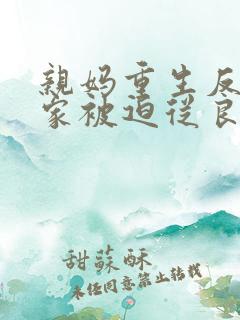 親妈重生反
家被迫從良
甜蘇酥
未经同意禁止转载